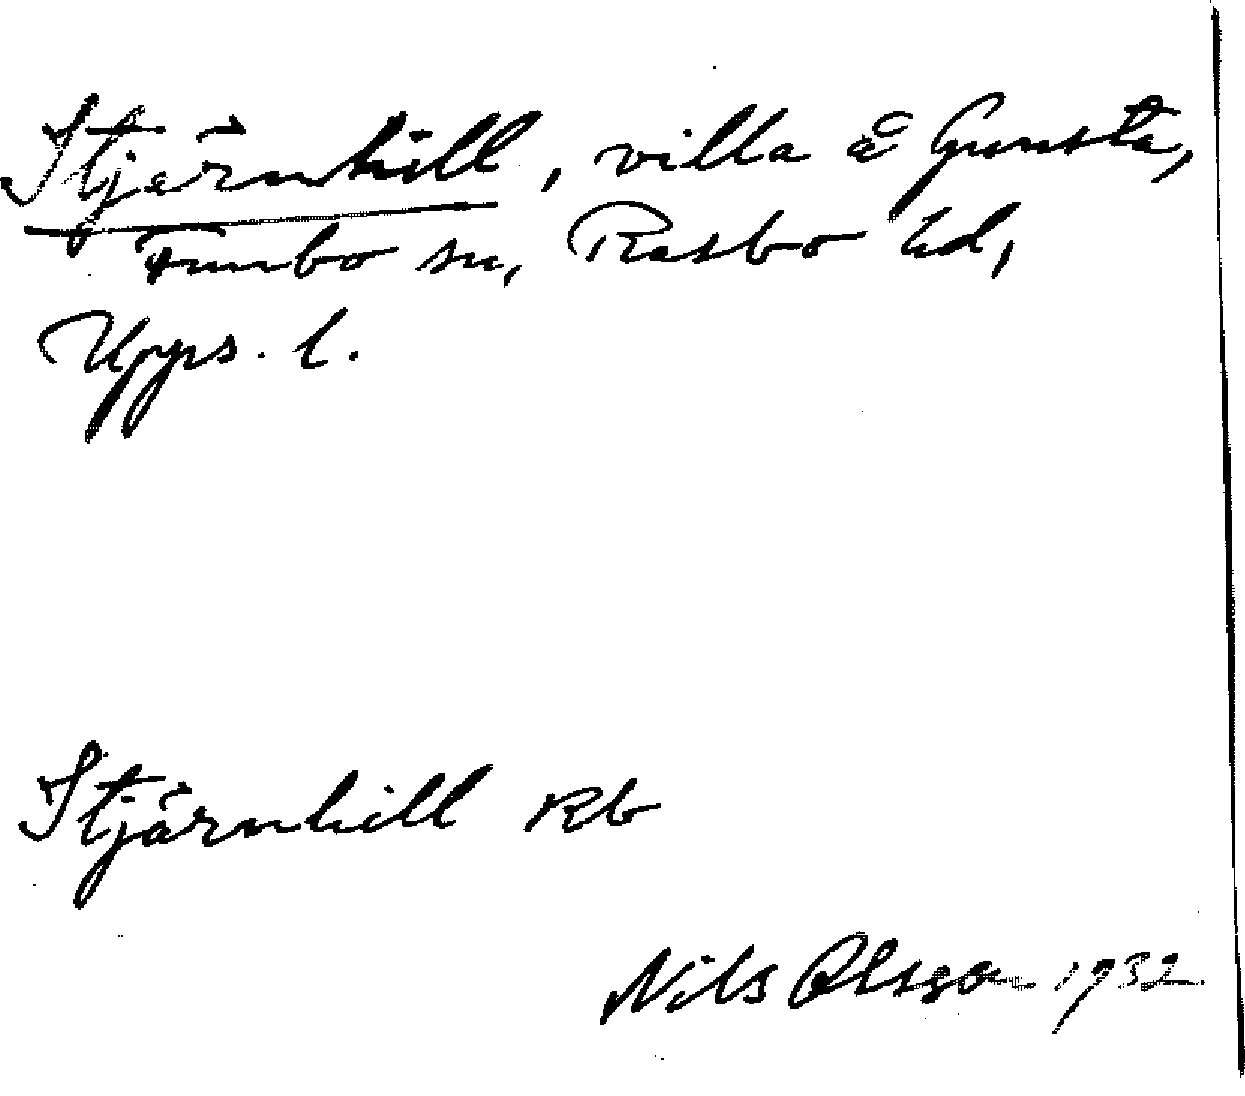 Stjärnhill, villa å Gunsta,
Funbo sn, Rasbo hd,
Upps. l.
Stjärnhill Rb
Nils Olsson 1932